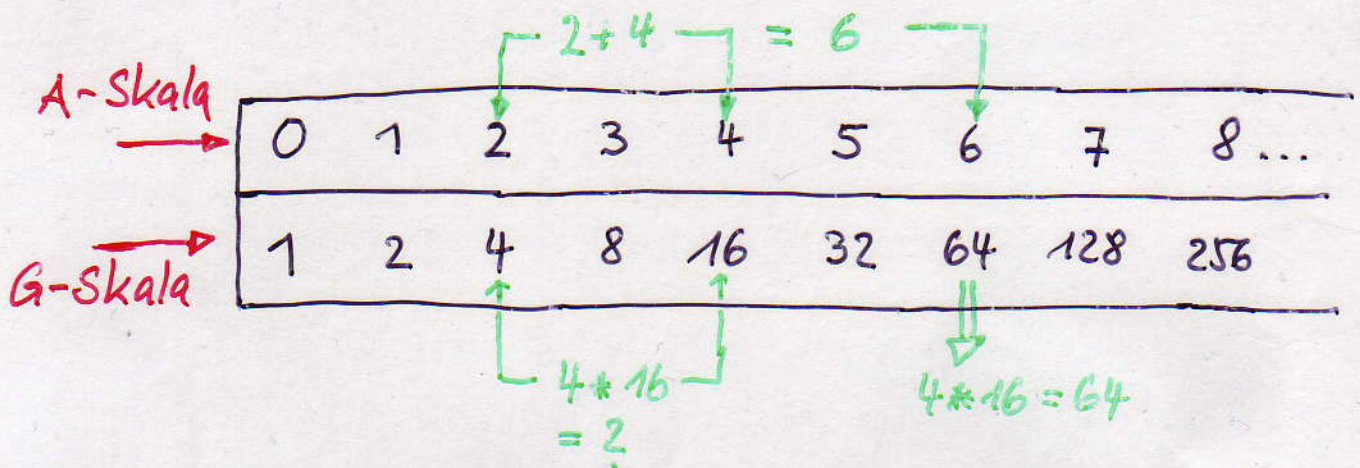 2+4 = 6
A-Skala
0 1 2 3 4 5 6 7 8...
1 2 4 8 16 32 64 128 256
G-Skala
4*16
= ?
4*16=64